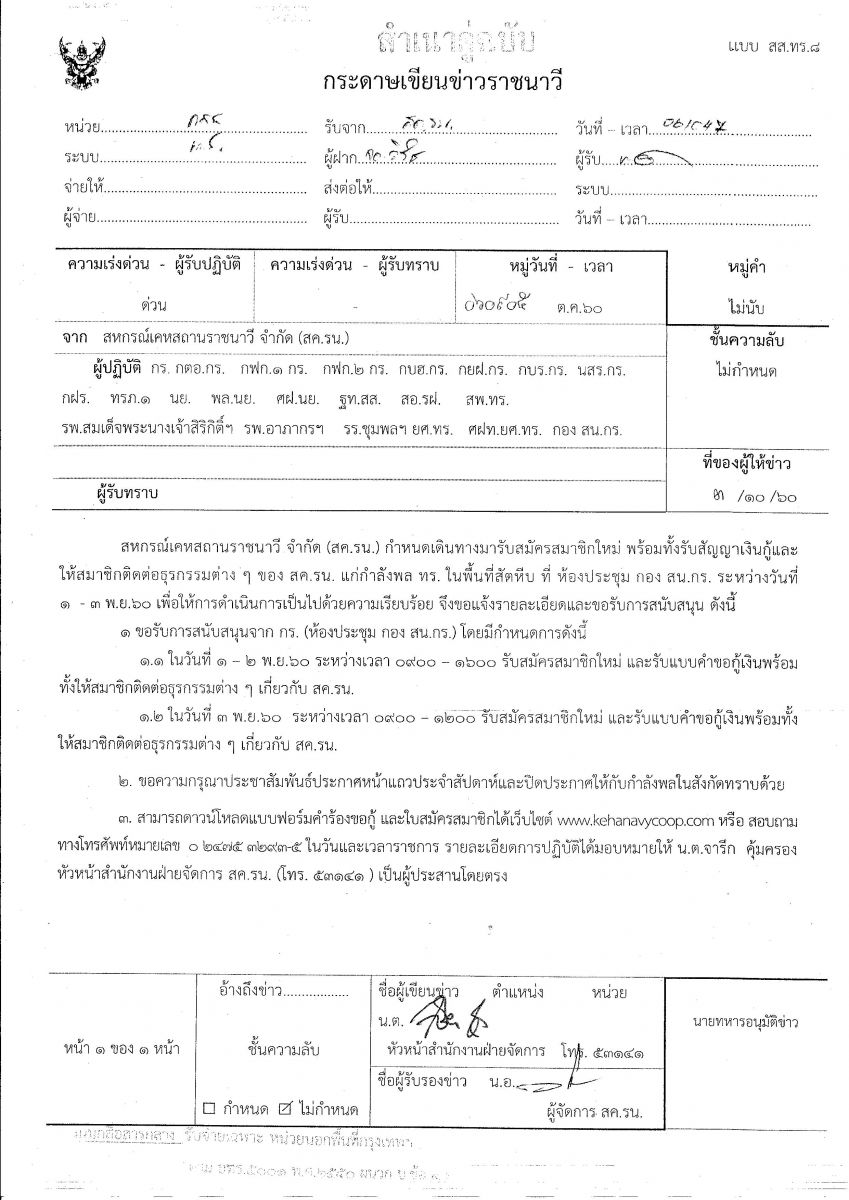 สำเนาคู่ฉบับ
แบบ สส.ทร.๘
กระดาษเขียนข่าวราชนาวี
หน่วย รับจาก วันที่ – เวลา
ระบบ ผู้ฝาก ผู้รับ
จ่ายให้ ส่งต่อให้ ระบบ
ผู้จ่าย ผู้รับ วันที่ – เวลา
ความเร่งด่วน - ผู้รับปฏิบัติ ความเร่งด่วน - ผู้รับทราบ หมู่วันที่ - เวลา หมู่คำ
ด่วน - ๐๖๐๙๐๕ ต.ค.๖๐ ไม่นับ
จาก สหกรณ์เคหสถานราชนาวี จำกัด (สค.รน.) ชั้นความลับ
ผู้ปฏิบัติ กร. กตอ.กร. กฟก.๑ กร. กฟก.๒ กร. กบฮ.กร. กยฝ.กร. กบร.กร. นสร.กร. ไม่กำหนด
กฝร. ทรภ.๑ นย. พล.นย. ศฝ.นย. ฐท.สส. สอ.รฝ. สพ.ทร.
รพ.สมเด็จพระนางเจ้าสิริกิติ์ฯ รพ.อาภากรฯ รร.ชุมพลฯ ยศ.ทร. ศฝท.ยศ.ทร. กอง สน.กร.
ที่ของผู้ให้ข่าว
ผู้รับทราบ ๓ /๑๐ /๖๐
สหกรณ์เคหสถานราชนาวี จำกัด (สค.รน.) กำหนดเดินทางมารับสมัครสมาชิกใหม่ พร้อมทั้งรับสัญญาเงินกู้และ
ให้สมาชิกติดต่อธุรกรรมต่าง ๆ ของ สค.รน. แก่กำลังพล ทร. ในพื้นที่สัตหีบ ที่ ห้องประชุม กอง สน.กร. ระหว่างวันที่
๑ - ๓ พ.ย.๖๐ เพื่อให้การดำเนินการเป็นไปด้วยความเรียบร้อย จึงขอแจ้งรายละเอียดและขอรับการสนับสนุน ดังนี้
๑ ขอรับการสนับสนุนจาก กร. (ห้องประชุม กอง สน.กร.) โดยมีกำหนดการดังนี้
๑.๑ ในวันที่ ๑ – ๒ พ.ย.๖๐ ระหว่างเวลา ๐๙๐๐ – ๑๖๐๐ รับสมัครสมาชิกใหม่ และรับแบบคำขอกู้เงินพร้อม
ทั้งให้สมาชิกติดต่อธุรกรรมต่าง ๆ เกี่ยวกับ สค.รน.
๑.๒ ในวันที่ ๓ พ.ย.๖๐ ระหว่างเวลา ๐๙๐๐ – ๑๒๐๐ รับสมัครสมาชิกใหม่ และรับแบบคำขอกู้เงินพร้อมทั้ง
ให้สมาชิกติดต่อธุรกรรมต่าง ๆ เกี่ยวกับ สค.รน.
๒. ขอความกรุณาประชาสัมพันธ์ประกาศหน้าแถวประจำสัปดาห์และปิดประกาศให้กับกำลังพลในสังกัดทราบด้วย
๓. สามารถดาวน์โหลดแบบฟอร์มคำร้องขอกู้ และใบสมัครสมาชิกได้เว็บไซต์ www.kehanavycoop.com หรือ สอบถาม
ทางโทรศัพท์หมายเลข ๐ ๒๔๗๕ ๓๒๙๓-๕ ในวันและเวลาราชการ รายละเอียดการปฏิบัติได้มอบหมายให้ น.ต.จารึก คุ้มครอง
หัวหน้าสำนักงานฝ่ายจัดการ สค.รน. (โทร. ๕๓๑๔๑ ) เป็นผู้ประสานโดยตรง
อ้างถึงข่าว ชื่อผู้เขียนข่าว ตำแหน่ง หน่วย
น.ต.
นายทหารอนุมัติข่าว
หน้า ๑ ของ ๑ หน้า ชั้นความลับ หัวหน้าสำนักงานฝ่ายจัดการ โทร. ๕๓๑๔๑
ชื่อผู้รับรองข่าว น.อ.
☐ กำหนด ☑ ไม่กำหนด ผู้จัดการ สค.รน.
รับจ่ายเฉพาะ หน่วยนอกพื้นที่กรุงเทพฯ